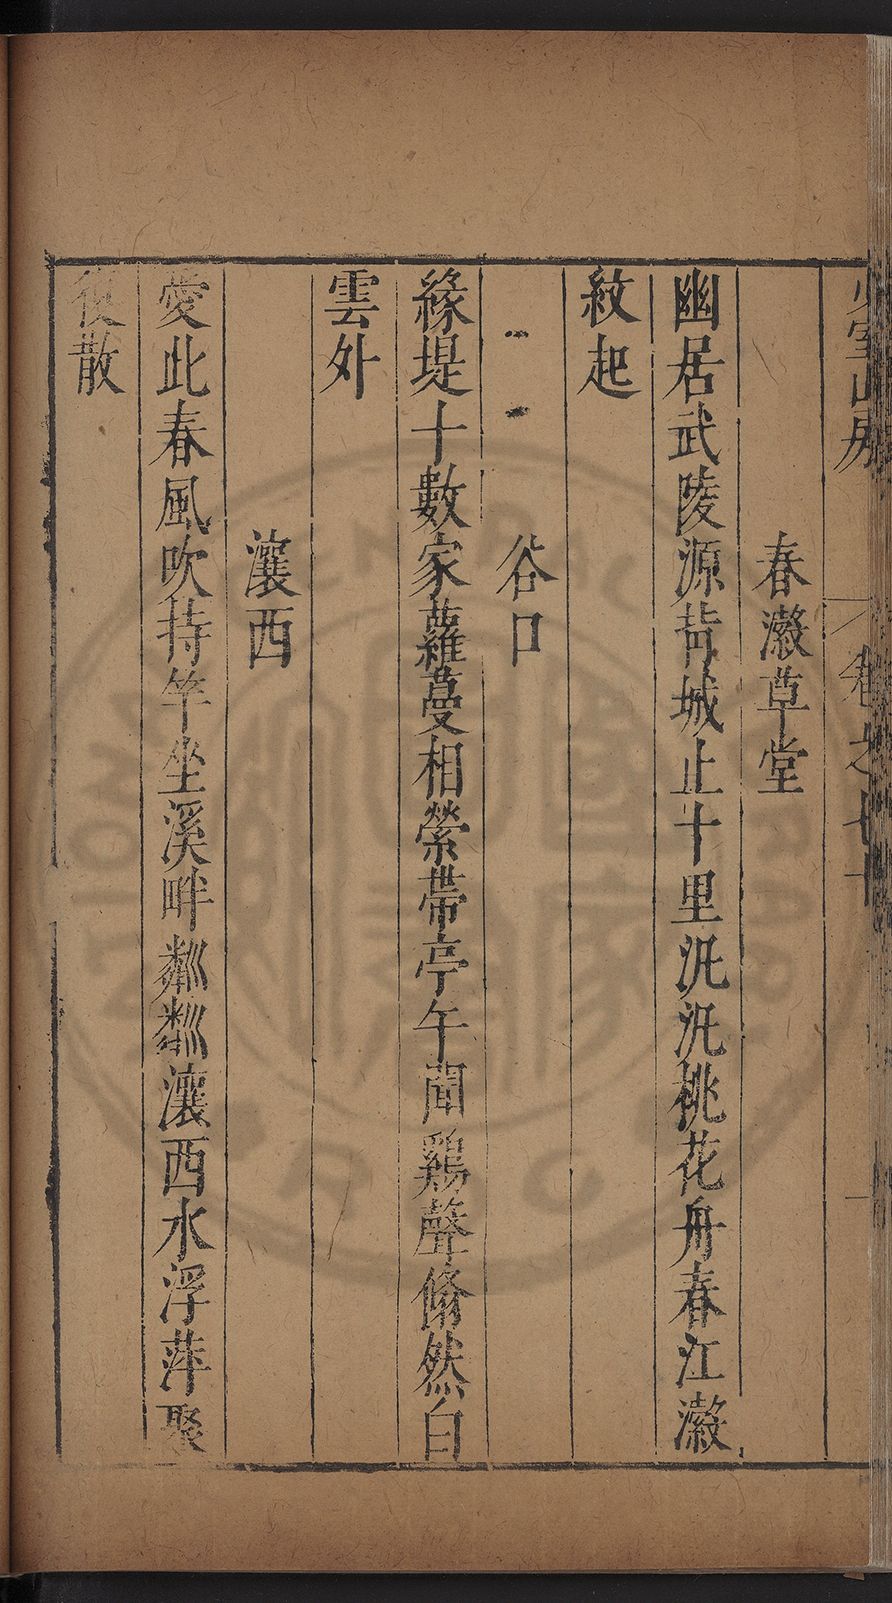 少室山房
卷之七十
春瀫草堂
幽居武陵源背城止十里汎汎桃花舟春江瀫
紋起
谷口
緣堤十數家蘿蔓相縈帶亭午聞鷄聲翛然白
雲外
瀼西
愛此春風吹持竿坐溪畔粼粼瀼西水浮萍聚
復散